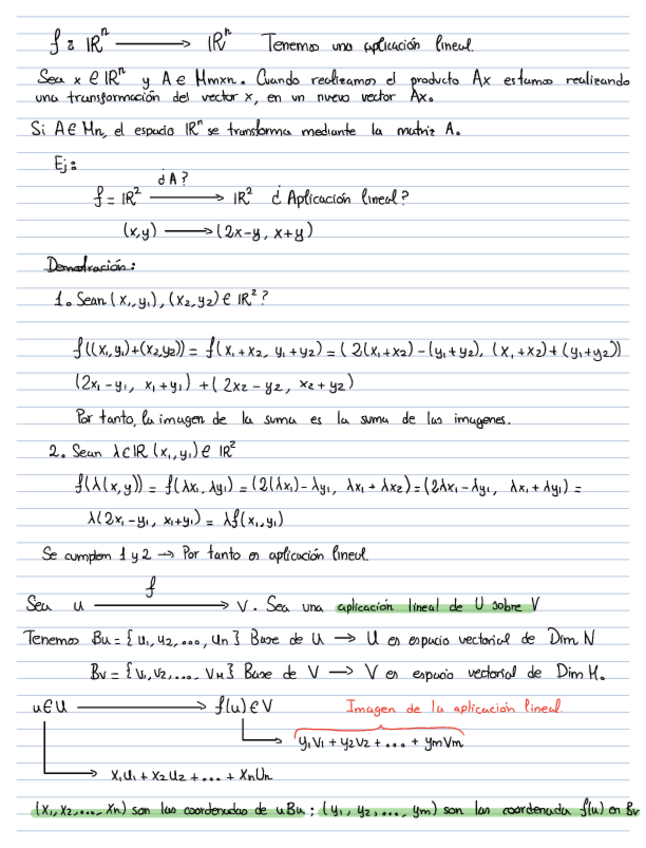 f: ℝⁿ ⟶ ℝⁿ Tenemos una aplicación lineal.
Sea x ∈ ℝⁿ y A ∈ Mmxn. Cuando realizamos el producto Ax estamos realizando
una transformación del vector x, en un nuevo vector Ax.
Si A ∈ Mn, el espacio ℝⁿ se transforma mediante la matriz A.
Ej:
¿A?
f = ℝ² ⟶ ℝ² ¿Aplicación lineal?
(x,y) ⟶ (2x-y, x+y)
Demostración:
1. Sean (x₁,y₁), (x₂,y₂) ∈ ℝ²?
f((x₁,y₁)+(x₂,y₂)) = f(x₁+x₂, y₁+y₂) = (2(x₁+x₂)-(y₁+y₂), (x₁+x₂)+(y₁+y₂))
(2x₁-y₁, x₁+y₁) + (2x₂-y₂, x₂+y₂)
Por tanto, la imagen de la suma es la suma de las imagenes.
2. Sean λ∈ℝ (x₁,y₁) ∈ ℝ²
f(λ(x,y)) = f(λx₁, λy₁) = (2(λx₁)-λy₁, λx₁+λx₂) = (2λx₁-λy₁, λx₁+λy₁) =
λ(2x₁-y₁, x₁+y₁) = λf(x₁,y₁)
Se cumplen 1 y 2 → Por tanto es aplicación lineal.
f
Sea u ⟶ V. Sea una aplicación lineal de U sobre V
Tenemos Bu = {u₁, u₂, ..., un} Base de U → U es espacio vectorial de Dim N
Bv = {v₁, v₂, ..., vM} Base de V → V es espacio vectorial de Dim M.
u∈U ⟶ f(u)∈V Imagen de la aplicación lineal.
y₁v₁ + y₂v₂ + ... + ymvm
x₁u₁ + x₂u₂ + ... + xnun
(x₁, x₂, ..., xn) son las coordenadas de uBu ; (y₁, y₂, ..., ym) son las coordenada f(u) en Bv